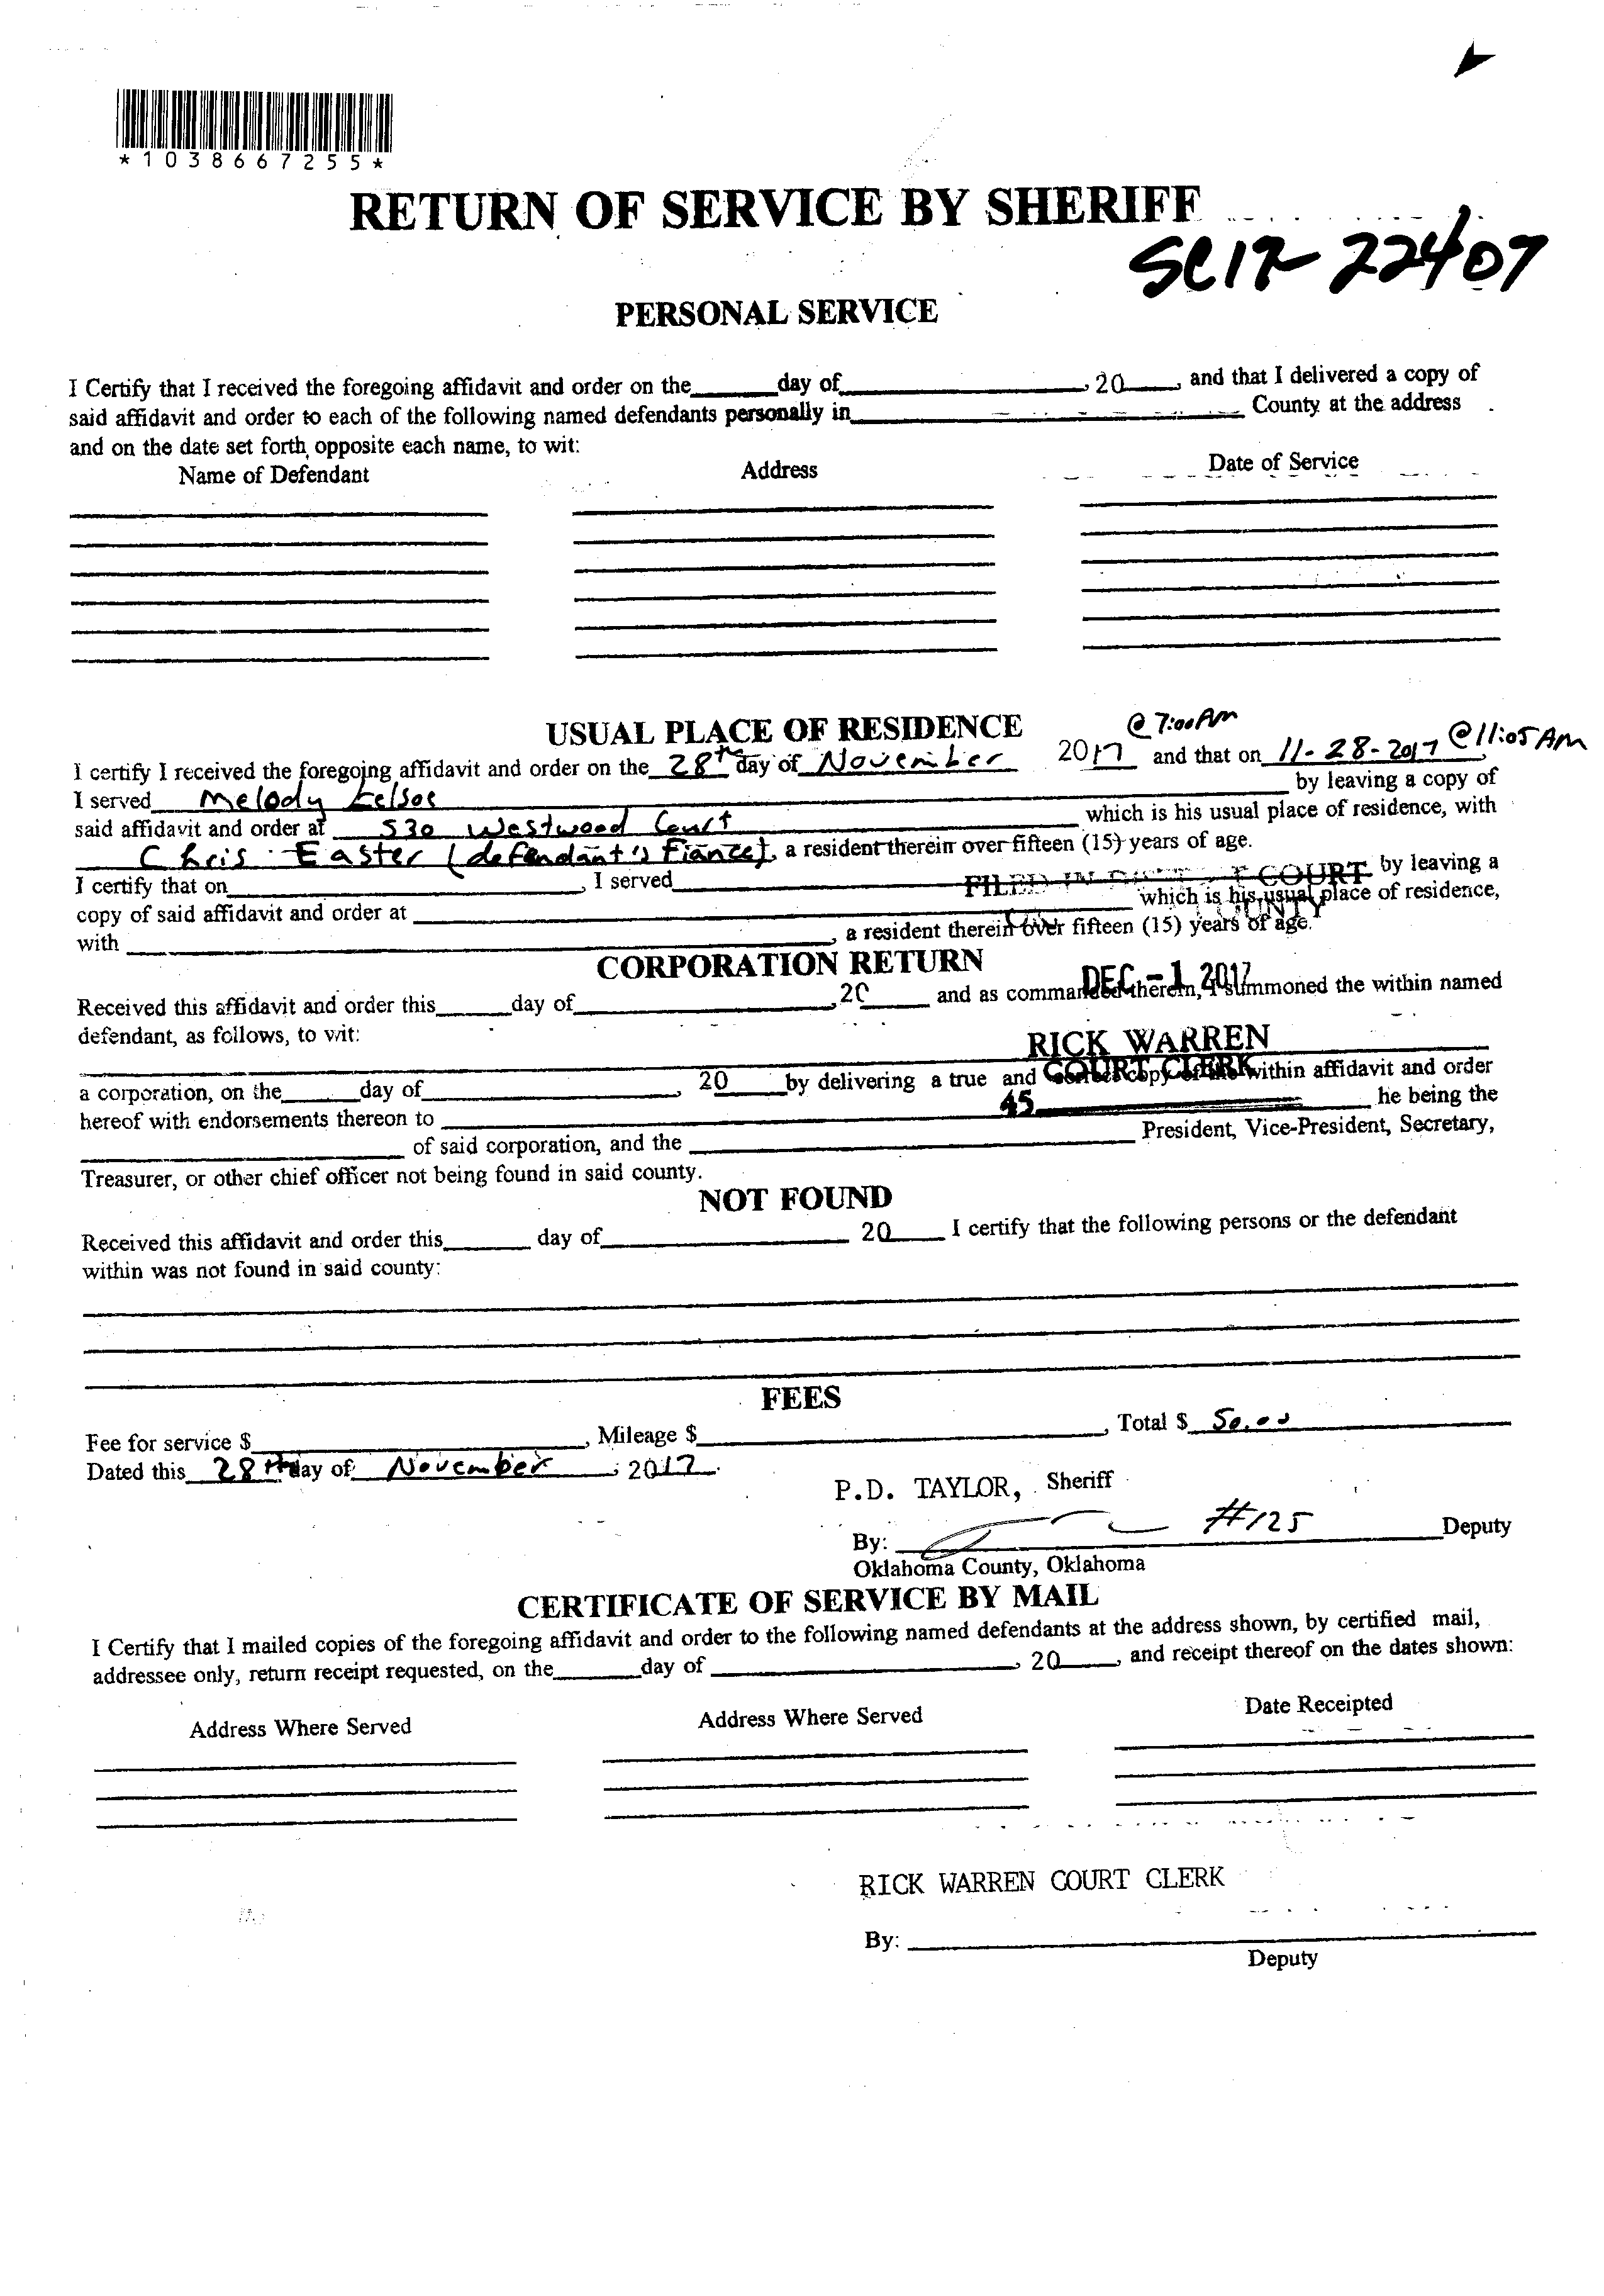 *1038667255*
RETURN OF SERVICE BY SHERIFF
SC17-22407
PERSONAL SERVICE
I Certify that I received the foregoing affidavit and order on the______day of____________________, 20____, and that I delivered a copy of
said affidavit and order to each of the following named defendants personally in____________________ County at the address
and on the date set forth opposite each name, to wit:
Name of Defendant Address Date of Service
USUAL PLACE OF RESIDENCE @ 7:00 Am
I certify I received the foregoing affidavit and order on the 28th day of November 2017 and that on 11-28-2017 @ 11:05 AM
I served Melody by leaving a copy of
said affidavit and order at 530 Westwood Court which is his usual place of residence, with
Chris Easter (defendant's Fiance), a resident therein over fifteen (15) years of age.
I certify that on____________________, I served____________________ by leaving a
FILED IN COURT
copy of said affidavit and order at ____________________ which is his usual place of residence,
with ____________________, a resident therein over fifteen (15) years of age.
CORPORATION RETURN
DEC - 1 2017
Received this affidavit and order this______day of____________________, 20____ and as commanded therein, I summoned the within named
defendant, as follows, to wit:
RICK WARREN
COURT CLERK
a corporation, on the______day of____________________, 20____by delivering a true and correct copy of the within affidavit and order
45
hereof with endorsements thereon to ____________________ he being the
____________________ of said corporation, and the ____________________ President, Vice-President, Secretary,
Treasurer, or other chief officer not being found in said county.
NOT FOUND
Received this affidavit and order this______ day of____________________ 20____ I certify that the following persons or the defendant
within was not found in said county:
FEES
Fee for service $____________________, Mileage $____________________, Total $ 50.00
Dated this 28th day of November, 2017.
P.D. TAYLOR, Sheriff
By: #125 Deputy
Oklahoma County, Oklahoma
CERTIFICATE OF SERVICE BY MAIL
I Certify that I mailed copies of the foregoing affidavit and order to the following named defendants at the address shown, by certified mail,
addressee only, return receipt requested, on the______day of ____________________, 20____, and receipt thereof on the dates shown:
Address Where Served Address Where Served Date Receipted
RICK WARREN COURT CLERK
By: ____________________
Deputy